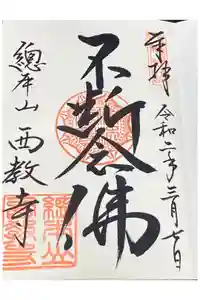 奉拝
令和二年三月廿日
不断念佛
總本山
西教寺